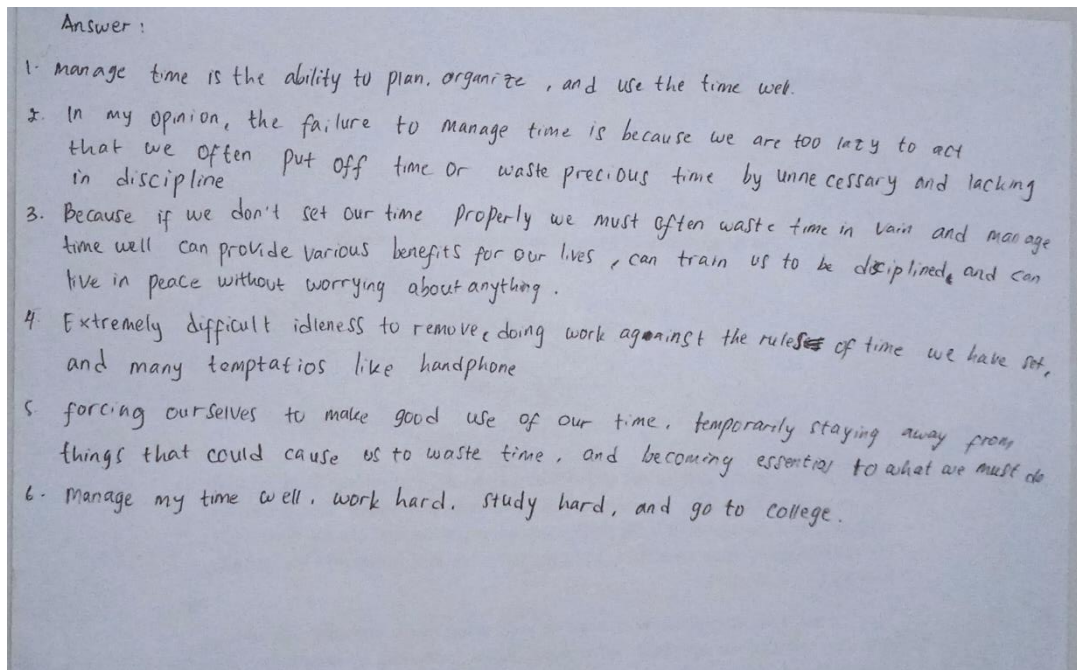 Answer :
1. Manage time is the ability to plan, organize, and use the time well.
2. In my opinion, the failure to manage time is because we are too lazy to act
that we often put off time or waste precious time by unnecessary and lacking
in discipline
3. Because if we don't set our time properly we must often waste time in vain and manage
time well can provide various benefits for our lives, can train us to be disciplined, and can
live in peace without worrying about anything.
4. Extremely difficult idleness to remove, doing work against the rules of time we have set,
and many temptatios like handphone
5. forcing ourselves to make good use of our time, temporarily staying away from
things that could cause us to waste time, and becoming essential to what we must do
6. Manage my time well, work hard, study hard, and go to college.